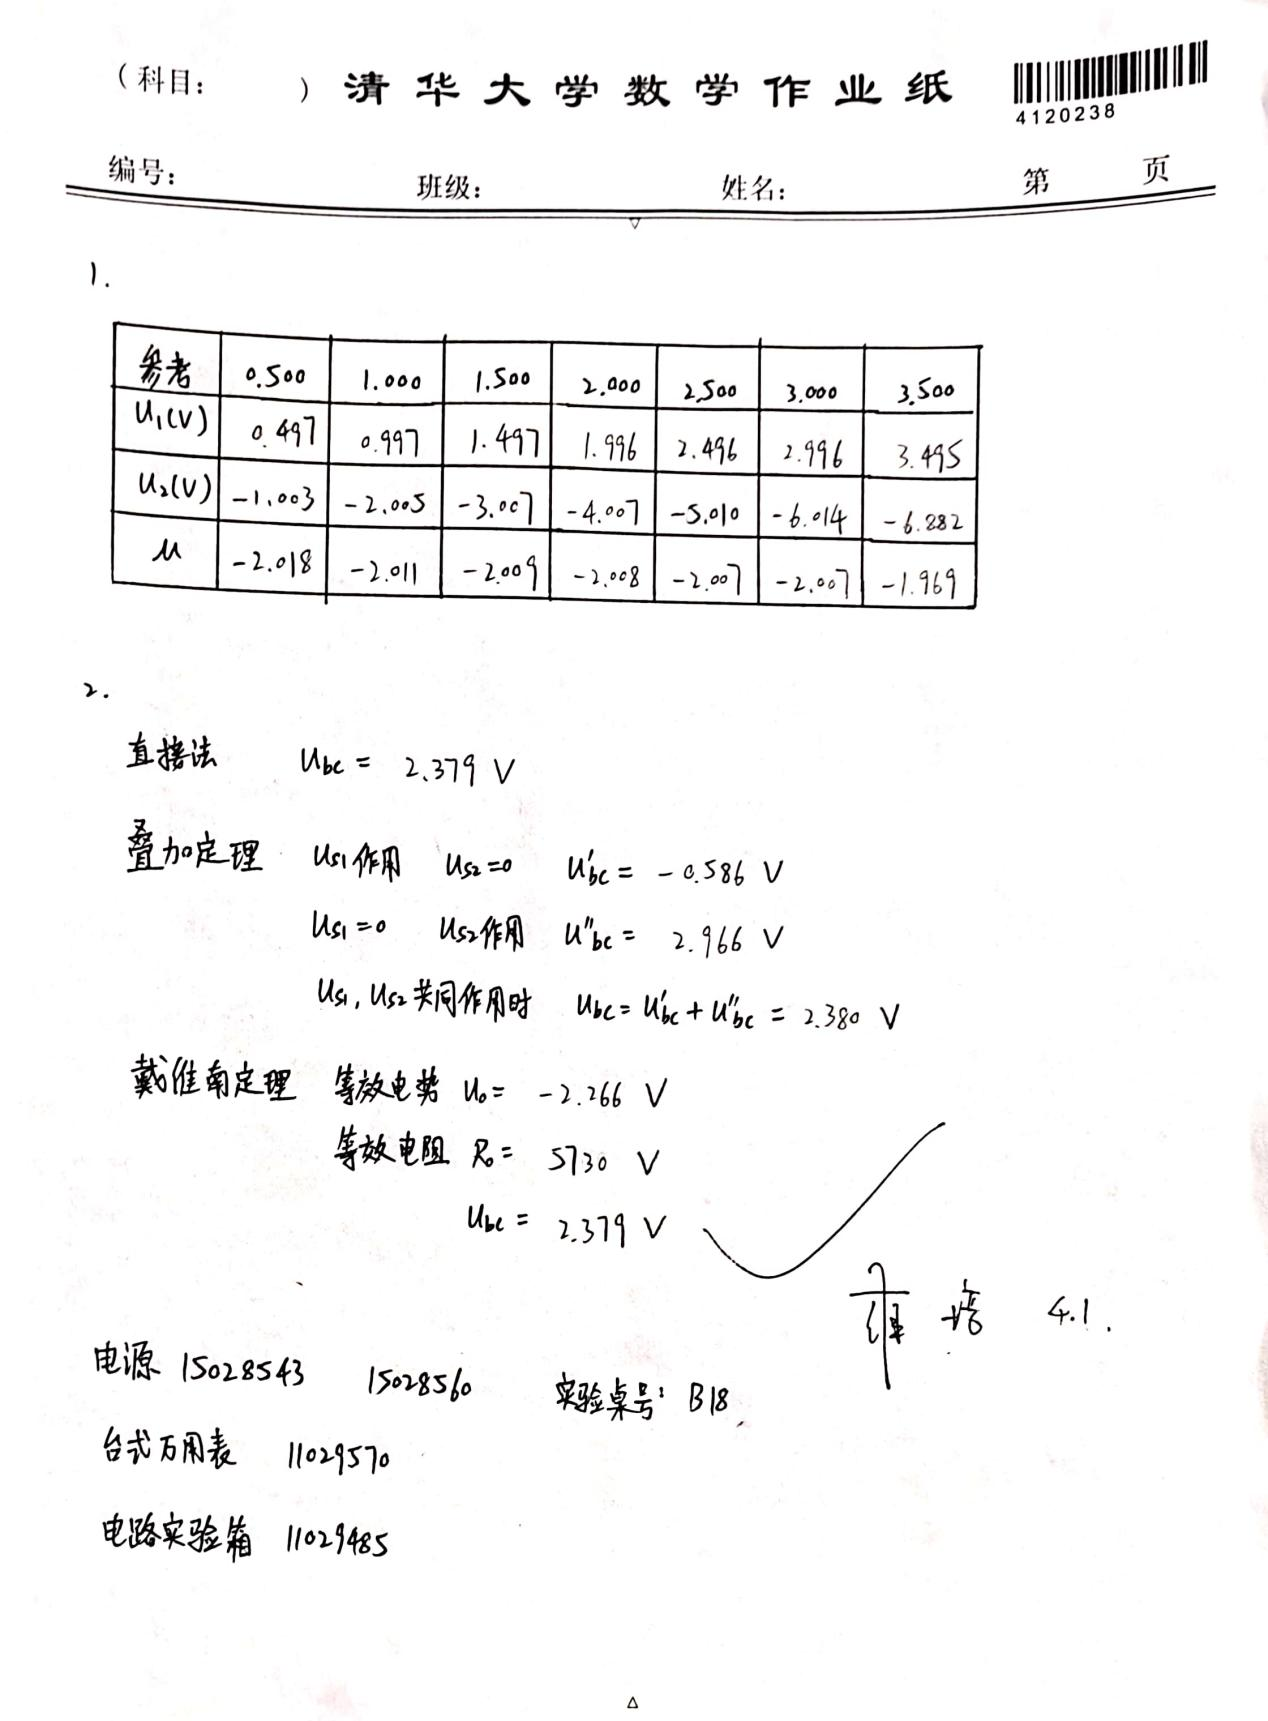 （科目：　　　）清华大学数学作业纸
4120238
编号：　　　班级：　　　姓名：　　　第　　　页
1.
参考 0.500 1.000 1.500 2.000 2.500 3.000 3.500
U₁(V) 0.497 0.997 1.497 1.996 2.496 2.996 3.495
U₂(V) -1.003 -2.005 -3.007 -4.007 -5.010 -6.014 -6.882
μ -2.018 -2.011 -2.009 -2.008 -2.007 -2.007 -1.969
2.
直接法 Ubc = 2.379 V
叠加定理 Us1作用 Us2=0 U'bc = -0.586 V
Us1=0 Us2作用 U"bc = 2.966 V
Us1, Us2共同作用时 Ubc = U'bc + U"bc = 2.380 V
戴维南定理 等效电势 U₀ = -2.266 V
等效电阻 R₀ = 5730 V
Ubc = 2.379 V
4.1.
电源 15028543 15028560 实验桌号：B18
台式万用表 11029570
电路实验箱 11029485